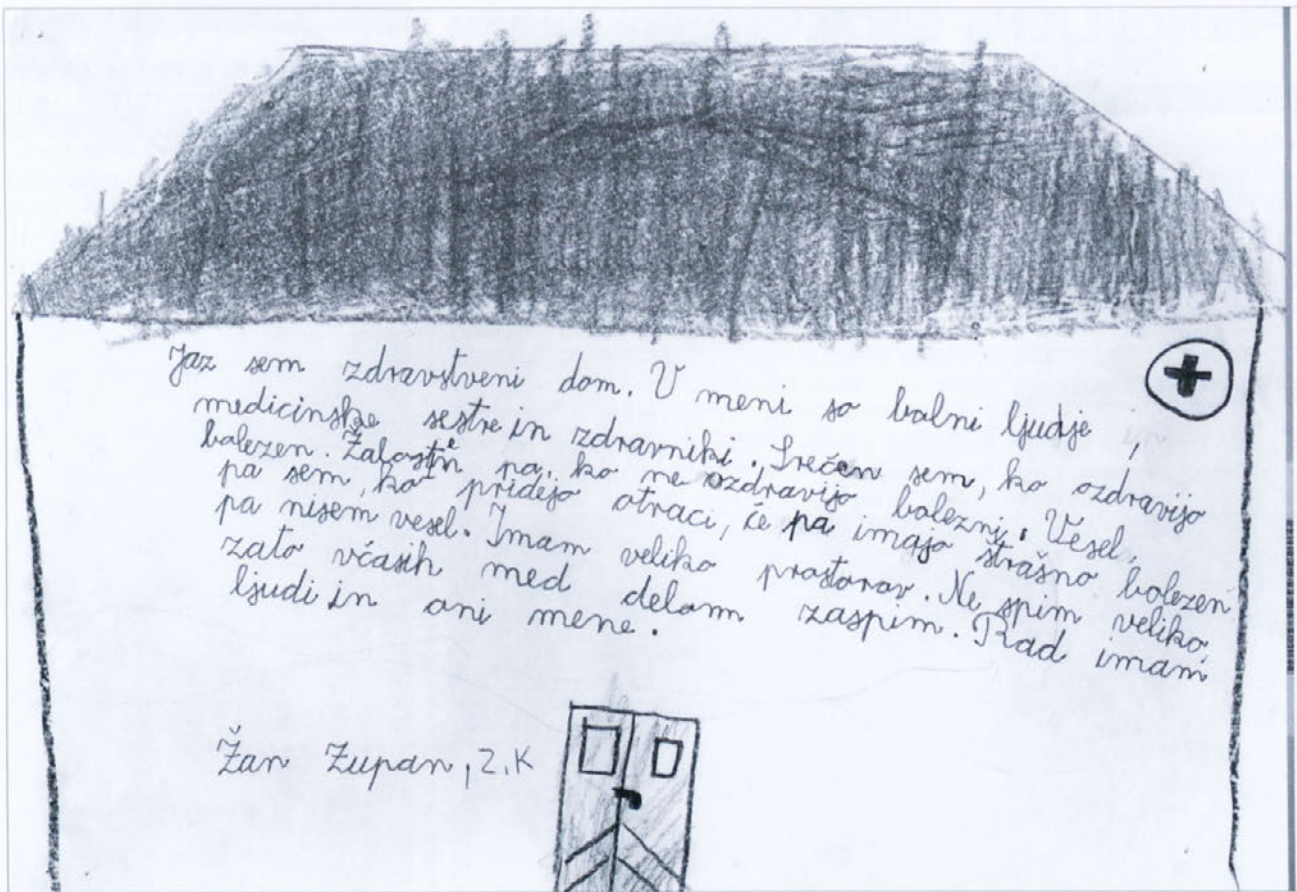 Jaz sem zdravstveni dom. V meni so bolni ljudje,
medicinske sestre in zdravniki. Srečen sem, ko ozdravijo
bolezen. Žalosten pa, ko ne ozdravijo bolezni. Vesel
pa sem, ko pridejo otroci, če pa imajo strašno bolezen
pa nisem vesel. Imam veliko prostorov. Ne spim veliko,
zato včasih med delom zaspim. Rad imam
ljudi in oni mene.
Žan Zupan, 2.K